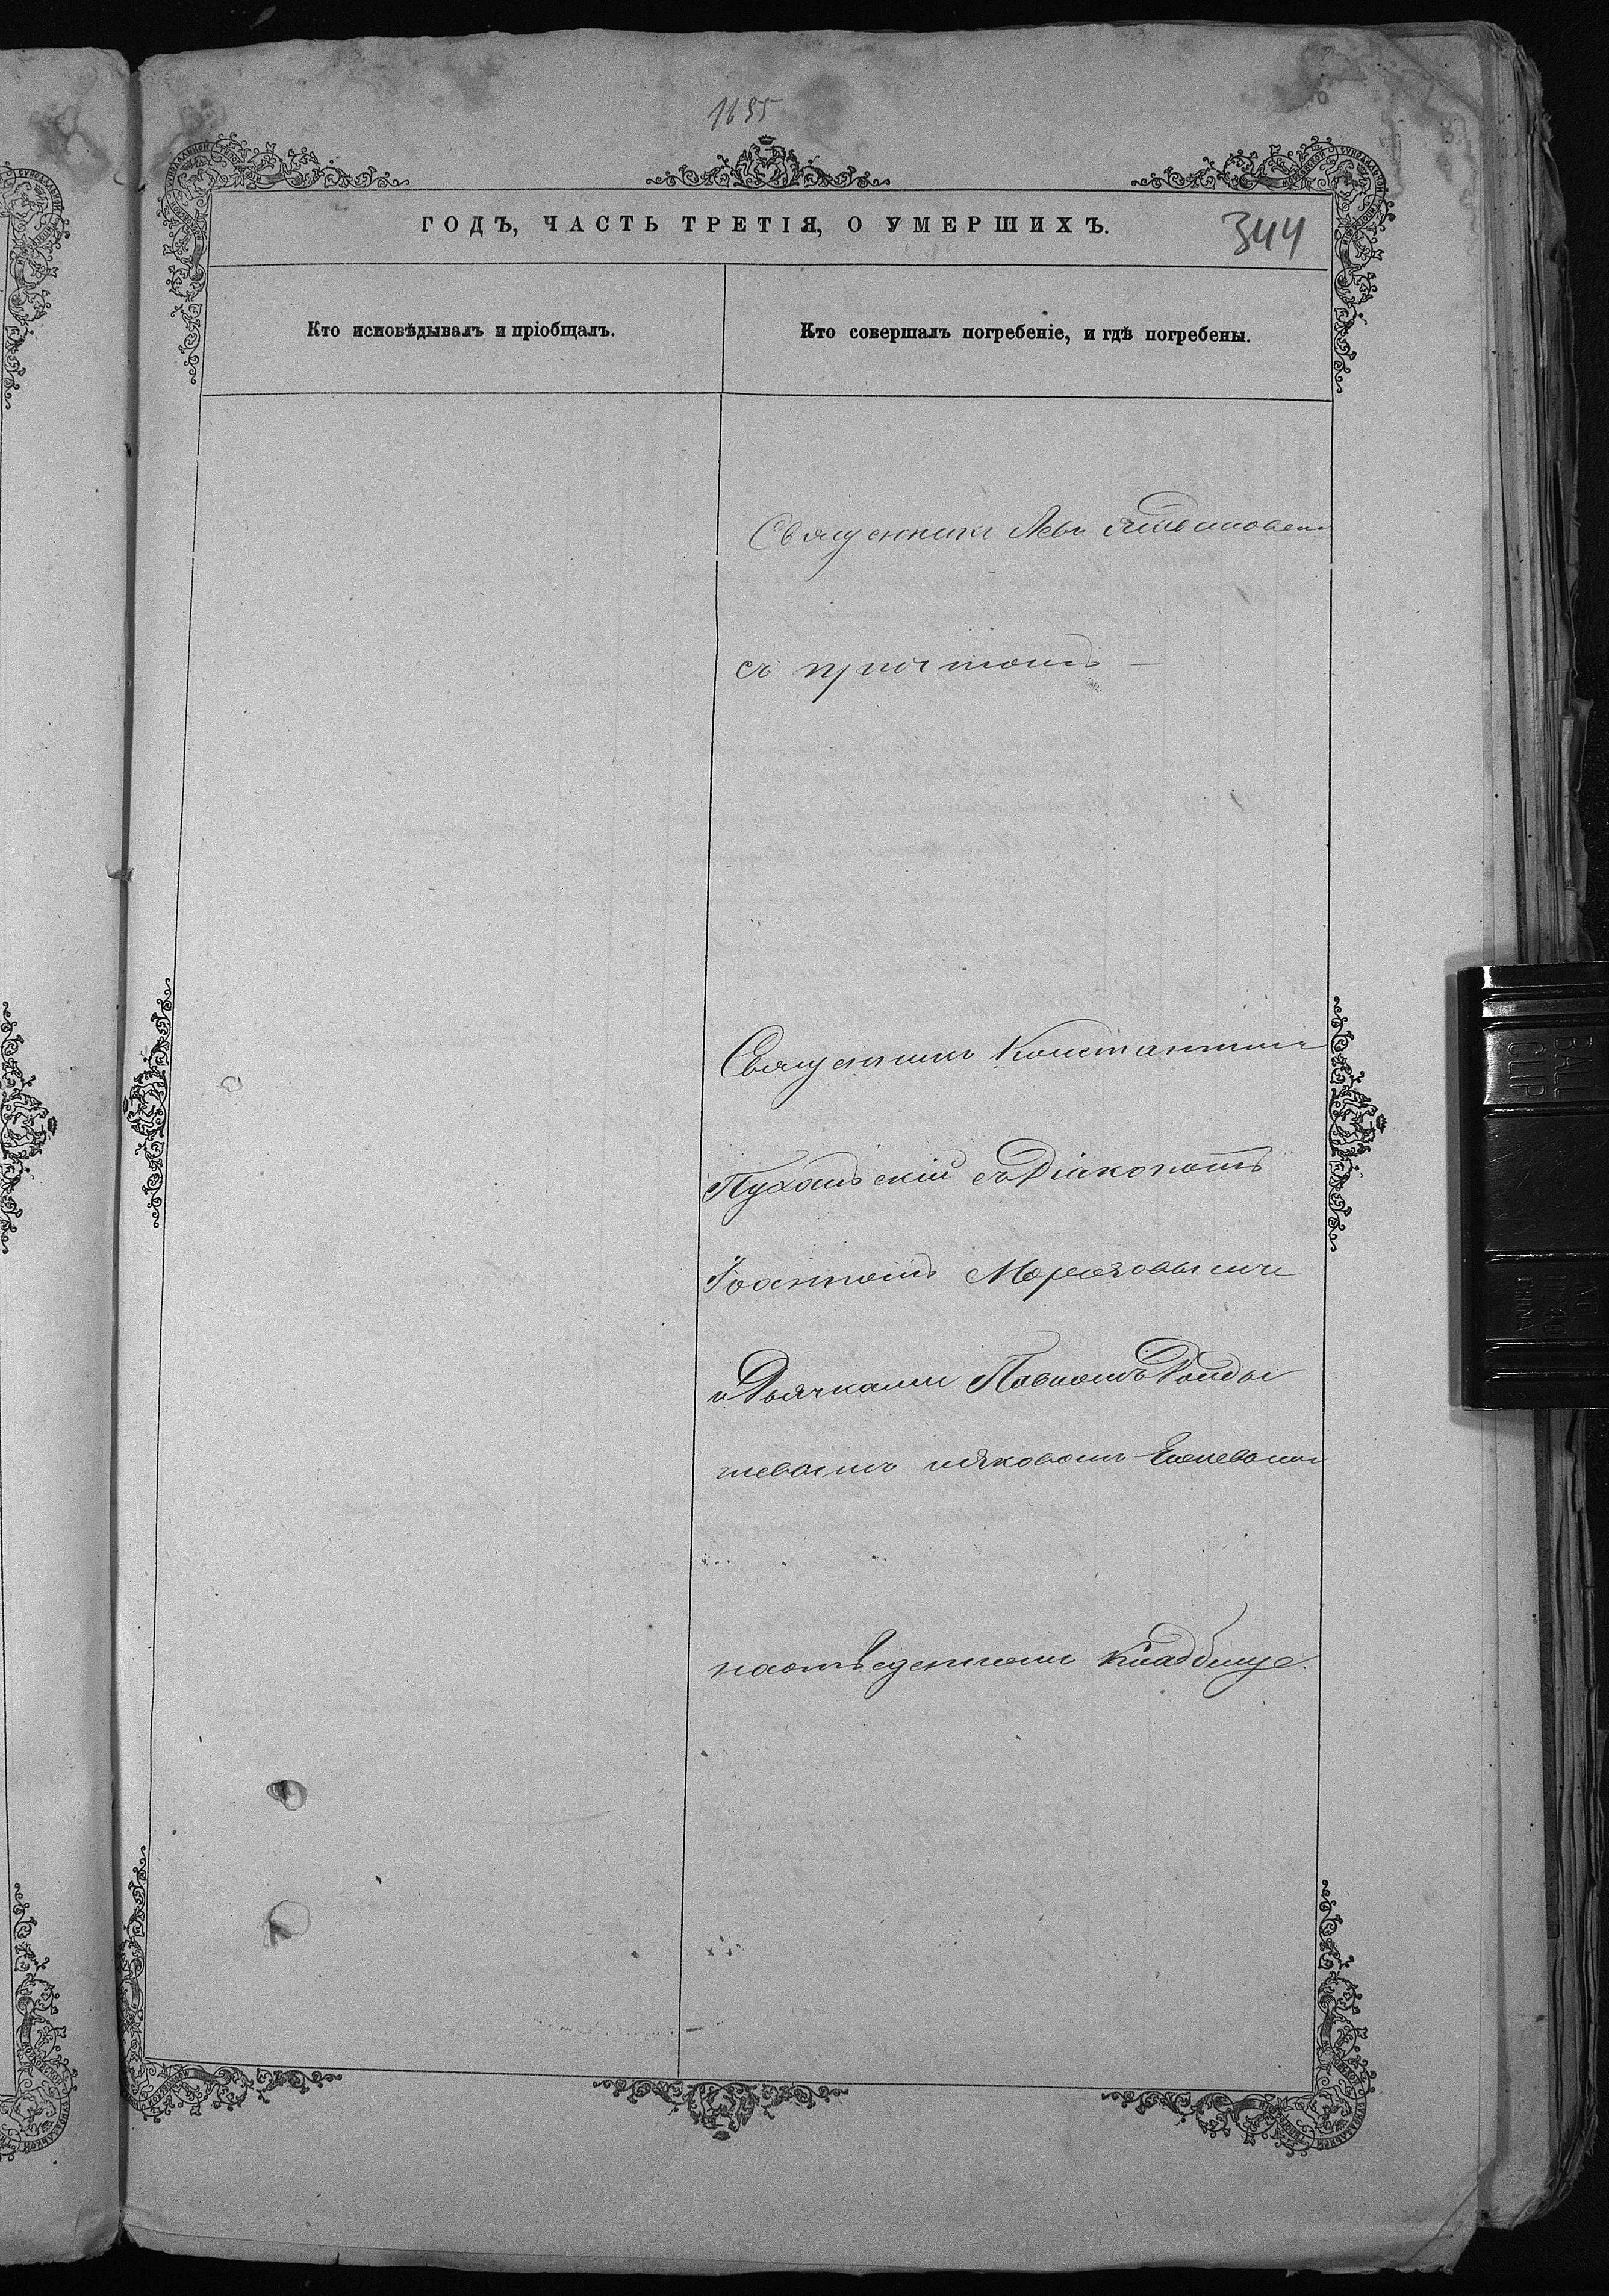 1655
ГОДЪ, ЧАСТЬ ТРЕТІЯ, О УМЕРШИХЪ.
344
Кто исповѣдывалъ и пріобщалъ.
Кто совершалъ погребеніе, и гдѣ погребены.
Священникъ Левъ
съ причтомъ —
Священникъ Константинъ
съ Діакономъ
Іоанномъ
и Дьячками Павломъ
и Яковомъ
на отведенномъ кладбище.
BALL
CLIP
NO
CHINA